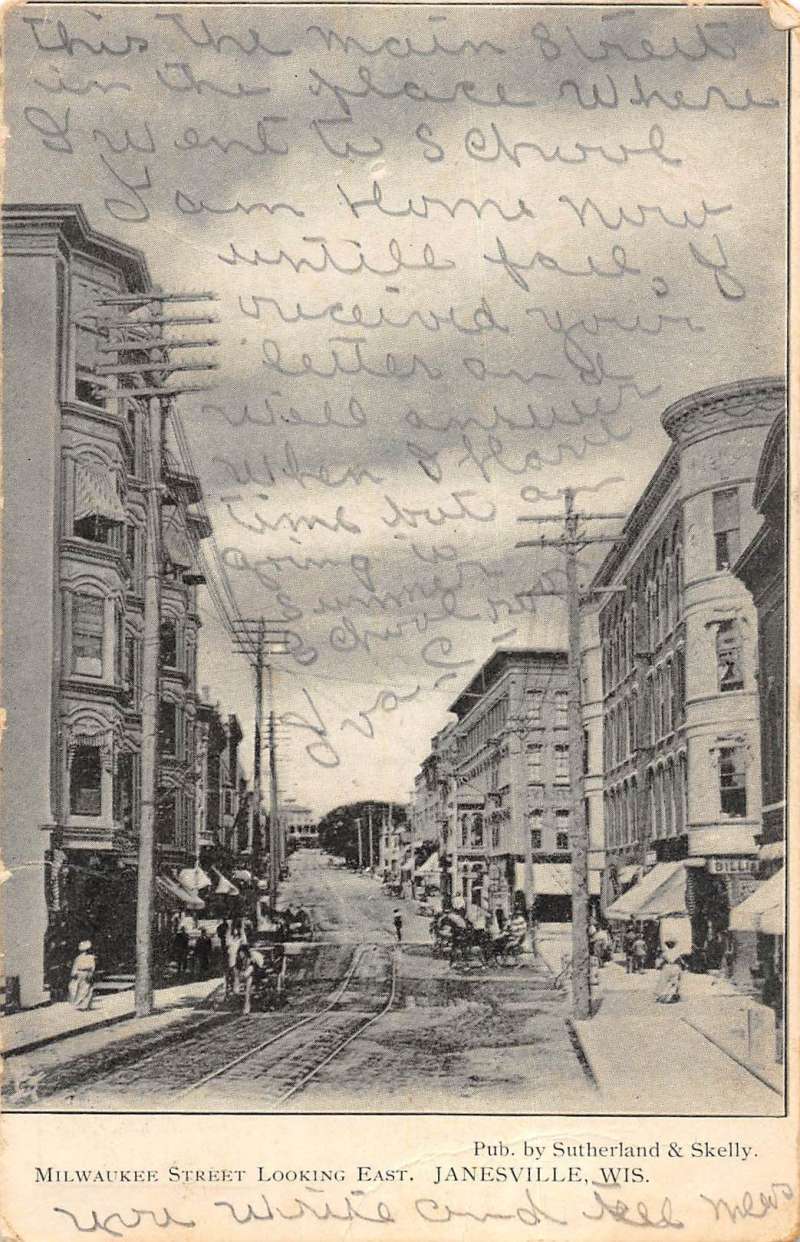 this the main Street
in the place where
I went to School
I am Home now
untill fall, I
received your
letter and
Well answer
When I Have
time but am
going to
Summer
School now
Iva C
BILLI
Pub. by Sutherland & Skelly.
MILWAUKEE STREET LOOKING EAST. JANESVILLE, WIS.
you write and tell news